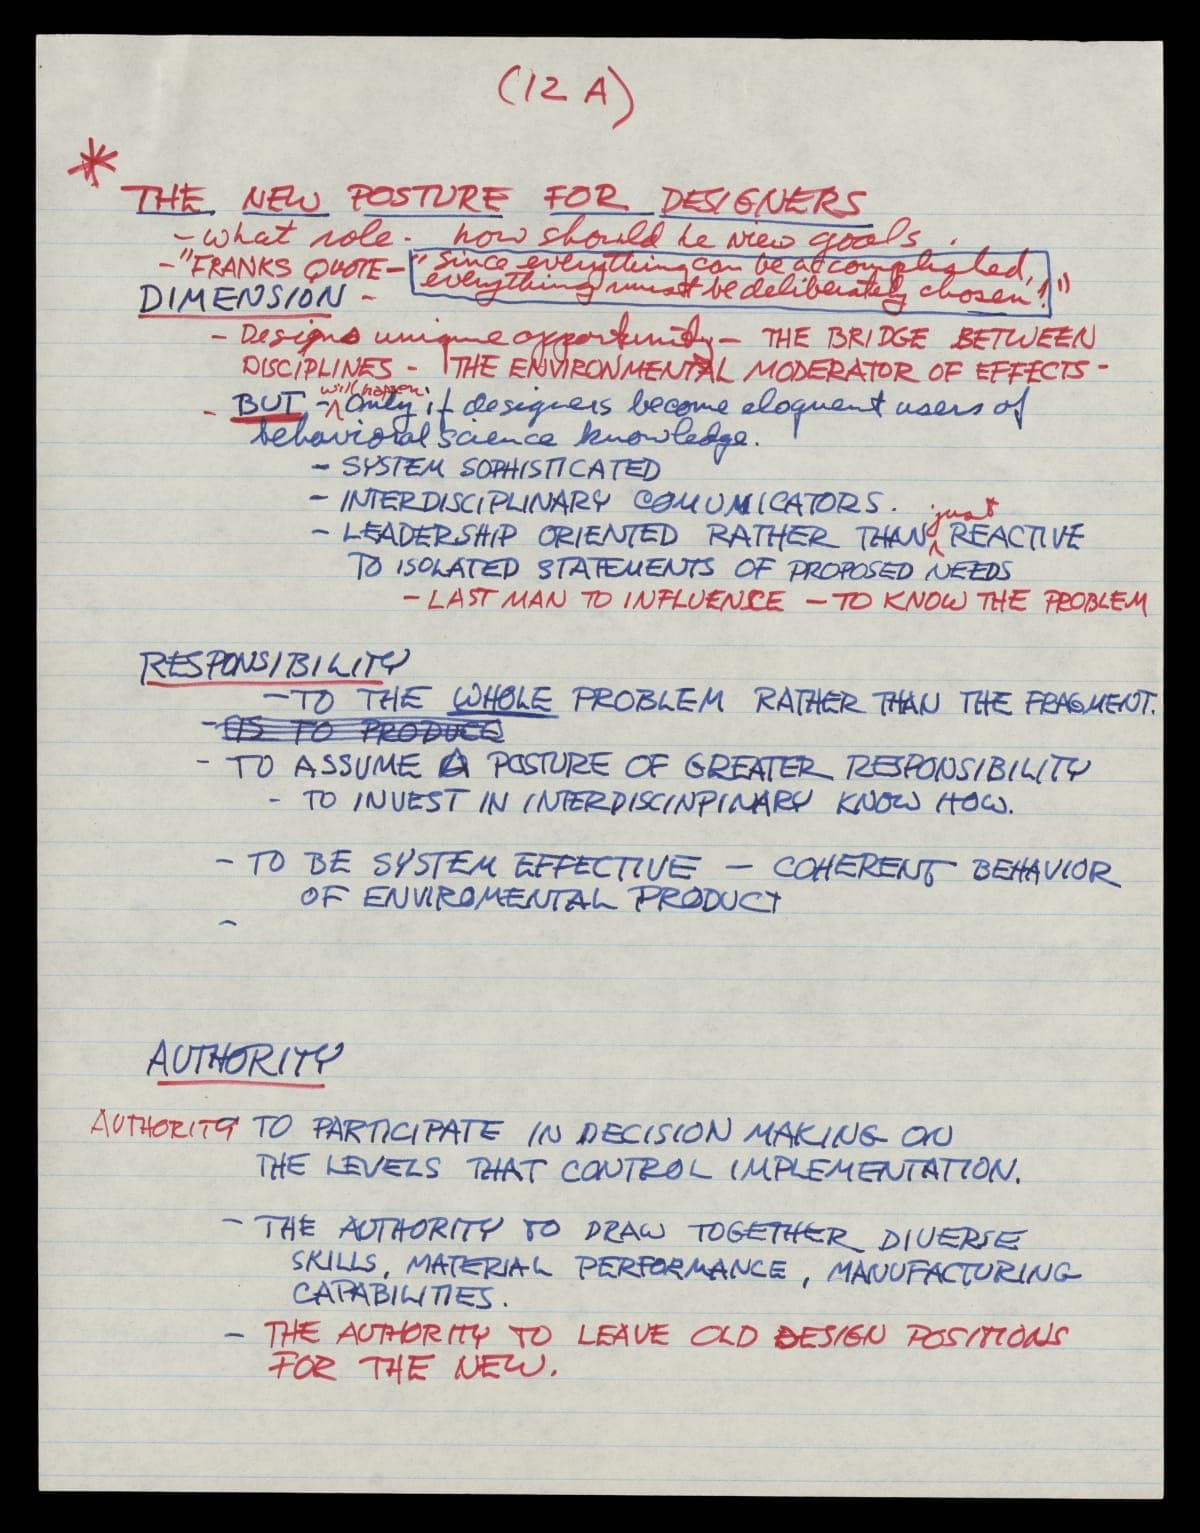 (12 A)
* THE NEW POSTURE FOR DESIGNERS
- what role - how should he view goals.
- "FRANKS QUOTE - "Since everything can be accomplished,
everything must be deliberately chosen!"
DIMENSION -
- Designs unique opportunity - THE BRIDGE BETWEEN
DISCIPLINES - THE ENVIRONMENTAL MODERATOR OF EFFECTS -
will happen
- BUT - Only if designers become eloquent users of
behavioral science knowledge.
- SYSTEM SOPHISTICATED
- INTERDISCIPLINARY COMUMICATORS.
just
- LEADERSHIP ORIENTED RATHER THAN REACTIVE
TO ISOLATED STATEMENTS OF PROPOSED NEEDS
- LAST MAN TO INFLUENCE - TO KNOW THE PROBLEM
RESPONSIBILITY
- TO THE WHOLE PROBLEM RATHER THAN THE FRAGMENT.
- TO PRODUCE
- TO ASSUME A POSTURE OF GREATER RESPONSIBILITY
- TO INVEST IN INTERDISCINPINARY KNOW HOW.
- TO BE SYSTEM EFFECTIVE - COHERENT BEHAVIOR
OF ENVIROMENTAL PRODUCT
-
AUTHORITY
AUTHORITY TO PARTICIPATE IN DECISION MAKING ON
THE LEVELS THAT CONTROL IMPLEMENTATION.
- THE AUTHORITY TO DRAW TOGETHER DIVERSE
SKILLS, MATERIAL PERFORMANCE, MANUFACTURING
CAPABILITIES.
- THE AUTHORITY TO LEAVE OLD DESIGN POSITIONS
FOR THE NEW.